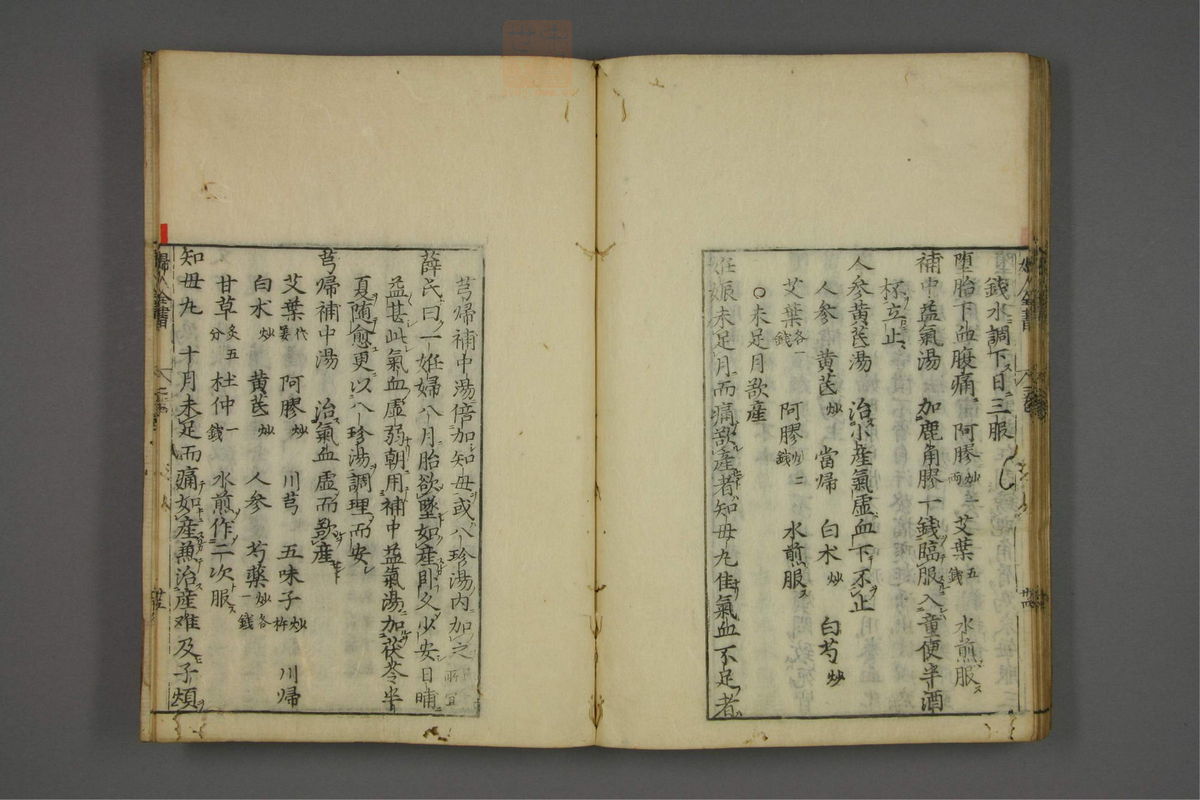 錢水調下日三服
堕胎下血腹痛 阿膠炒一兩 艾葉五錢 水煎服
補中益氣湯 加鹿角膠一錢臨服入童便半酒
杯立止
人參黃芪湯 治小產氣虛血下不止
人參 黃芪炒 當歸 白朮炒 白芍炒
艾葉各一錢 阿膠炒二錢 水煎服
○未足月欲產
妊娠未足月而痛欲產者知母丸佳氣血不足者
芎歸補中湯倍加知母或八珍湯内加之
薛氏曰一妊婦八月胎欲墜如産卧久少安日晡
益甚此氣血虛弱朝用補中益氣湯加茯苓半
夏随愈更以八珍湯調理而安
芎歸補中湯 治氣血虛而欲產
艾葉代薑 阿膠炒 川芎 五味子炒杵 川歸
白朮炒 黃芪炒 人參 芍藥炒各一錢
甘草炙五分 杜仲一錢 水煎作二次服
知母丸 十月未足而痛如產兼治產难及子煩
婦人全書